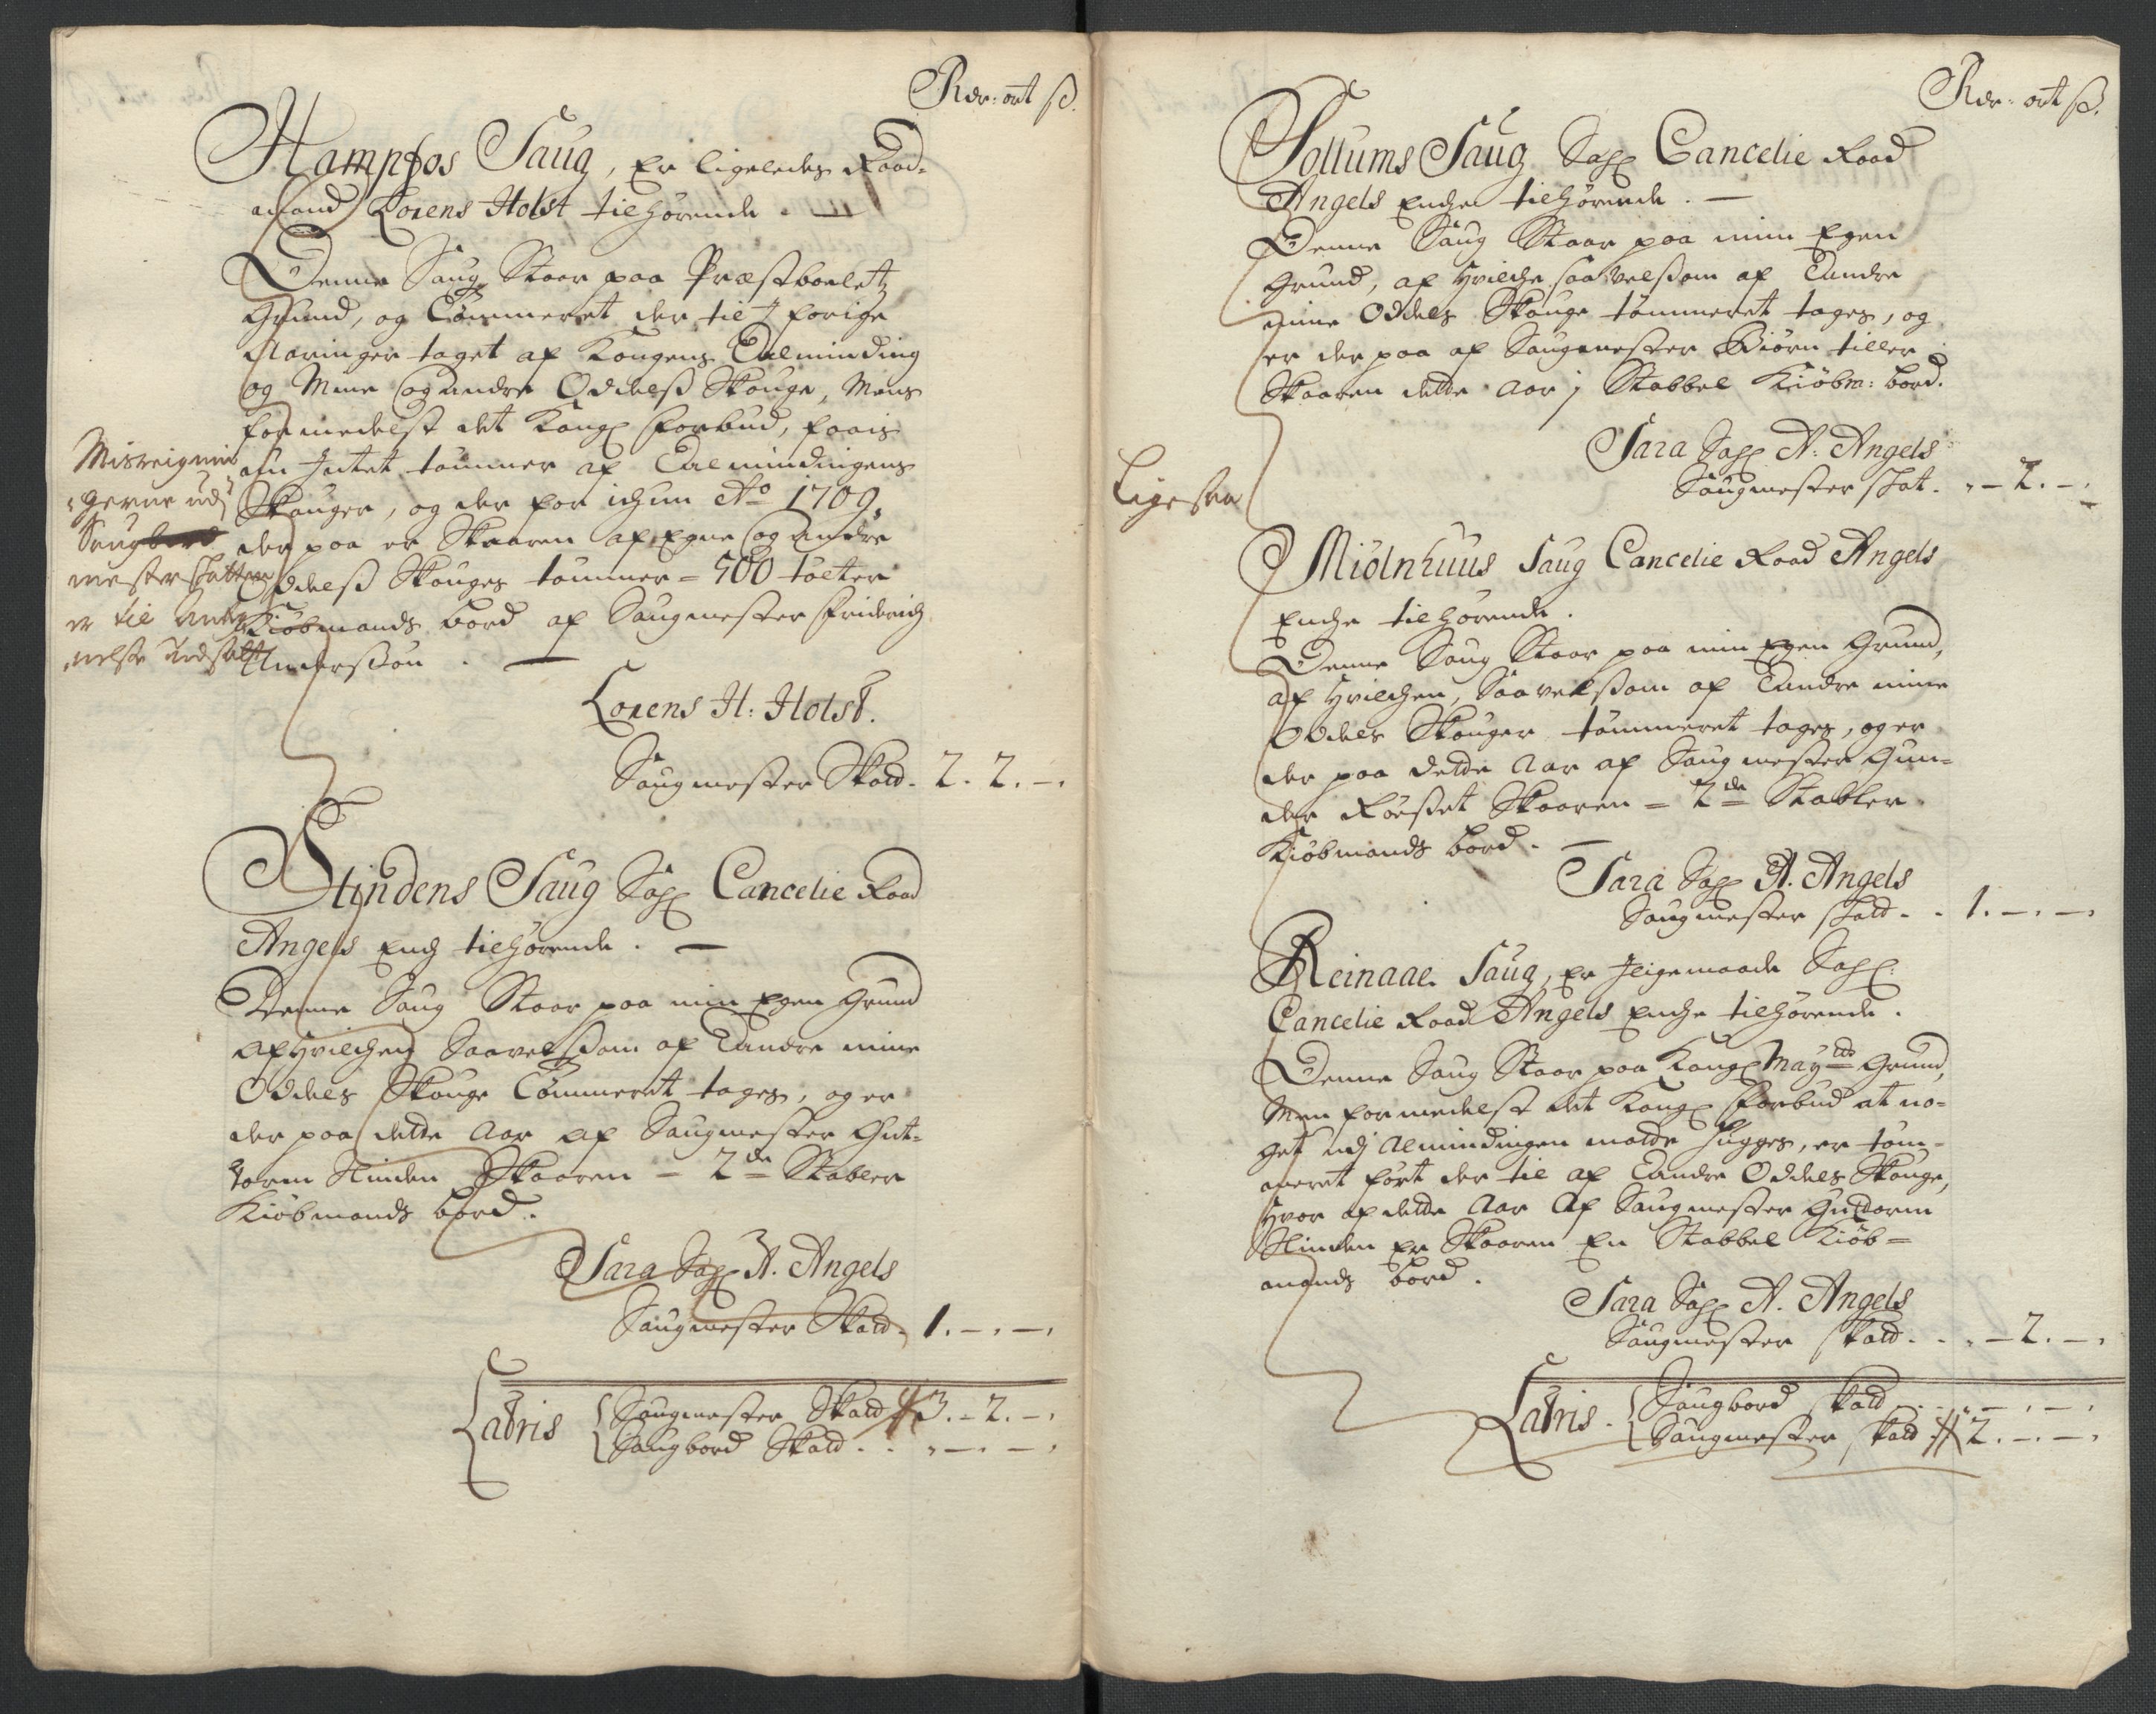 Rdr: ort ß.
Hampfos Saug, Er ligeledes Raad-
mand Lorens Holst tilhørende. —
Denne Saug Staar paa Præstboeletz
Grund, og Tømmeret der til i forige
Aaringer taget af Kongens Allminding
og Mine og andre Oddelß Skouge, Mens
formedelst det Kongl forbud, faais
nu Intet tømmer af Allmindingens
Skouger, og der for ichun Ao 1709,
der paa er Skaaren af Egne og andre
Oddelß Skouges tømmer = 500 tolter
Kiøbmands bord af Saugmester Friderich
Anderssøn . —
Misreignin
gerne udj
Saugbord
mester skatten
er til
nelse udsatt
Lorens H: Holst.
Saugmester Skatt - 2. 2. -.
Stindens Saug Sal Cancelie Raad
Angels Ench tilhørende . —
Denne Saug Staar paa min Egen Grund
af hvilchen Saavelsom af andre mine
Oddels Skouge Tømmeret tages, og er
der paa dette Aar af Saugmester Gut-
torm Stinden Skaaren = 2de Stabler
Kiøbmands bord.
Sara Sal A. Angels
Saugmester Skatt - 1. -. -.
Latris Saugmester Skatt 3. - 2. -.
Saugbord Skatt - . . -. -.
Rdr: ort ß.
Sollums Saug Sal Cancelie Raad
Angels Enche tilhørende . —
Denne Saug Staar paa min Egen
Grund, af hvilche saavelsom af andre
mine Oddels Skouge tømmeret tages, og
er der paa af Saugmester Biørn tiller
Skaaren dette Aar j Stabbel Kiøbm: bord.
Sara Sal A: Angels
Saugmester skat . . - 2. -.
Ligesaa
Miølnhuus Saug Cancelie Raad Angels
Enche tilhørende .
Denne Saug Staar paa min Egen Grund,
af hvilchen, Saavelsom af andre mine
Oddels Skouger tømmeret tages, og er
der paa dette Aar af Saugmester Gun-
der Rørsset Skaaren = 2de Stabler
Kiøbmands bord . —
Sara Sal A. Angels
Saugmester skatt - . 1. -. -.
Reinaae Saug, Er Jligemaade Sal:
Cancelie Raad Angels Enche tilhørende .
Denne Saug Staar paa Kongl Maytts Grund,
Men formedelst det Kongl forbud at no-
get udj Almindingen motte hugges, er tøm-
meret ført der til af andre Oddels Skouge,
hvor af dette Aar Af Saugmester Guttorm
Stinden Er Skaaren En Stabbel Kiøb-
mands bord .
Sara Sal A. Angels
Saugmester skatt . . - 2. -.
Latris . Saugbord skatt . . . -. -.
Saugmester skatt 2. -. -.